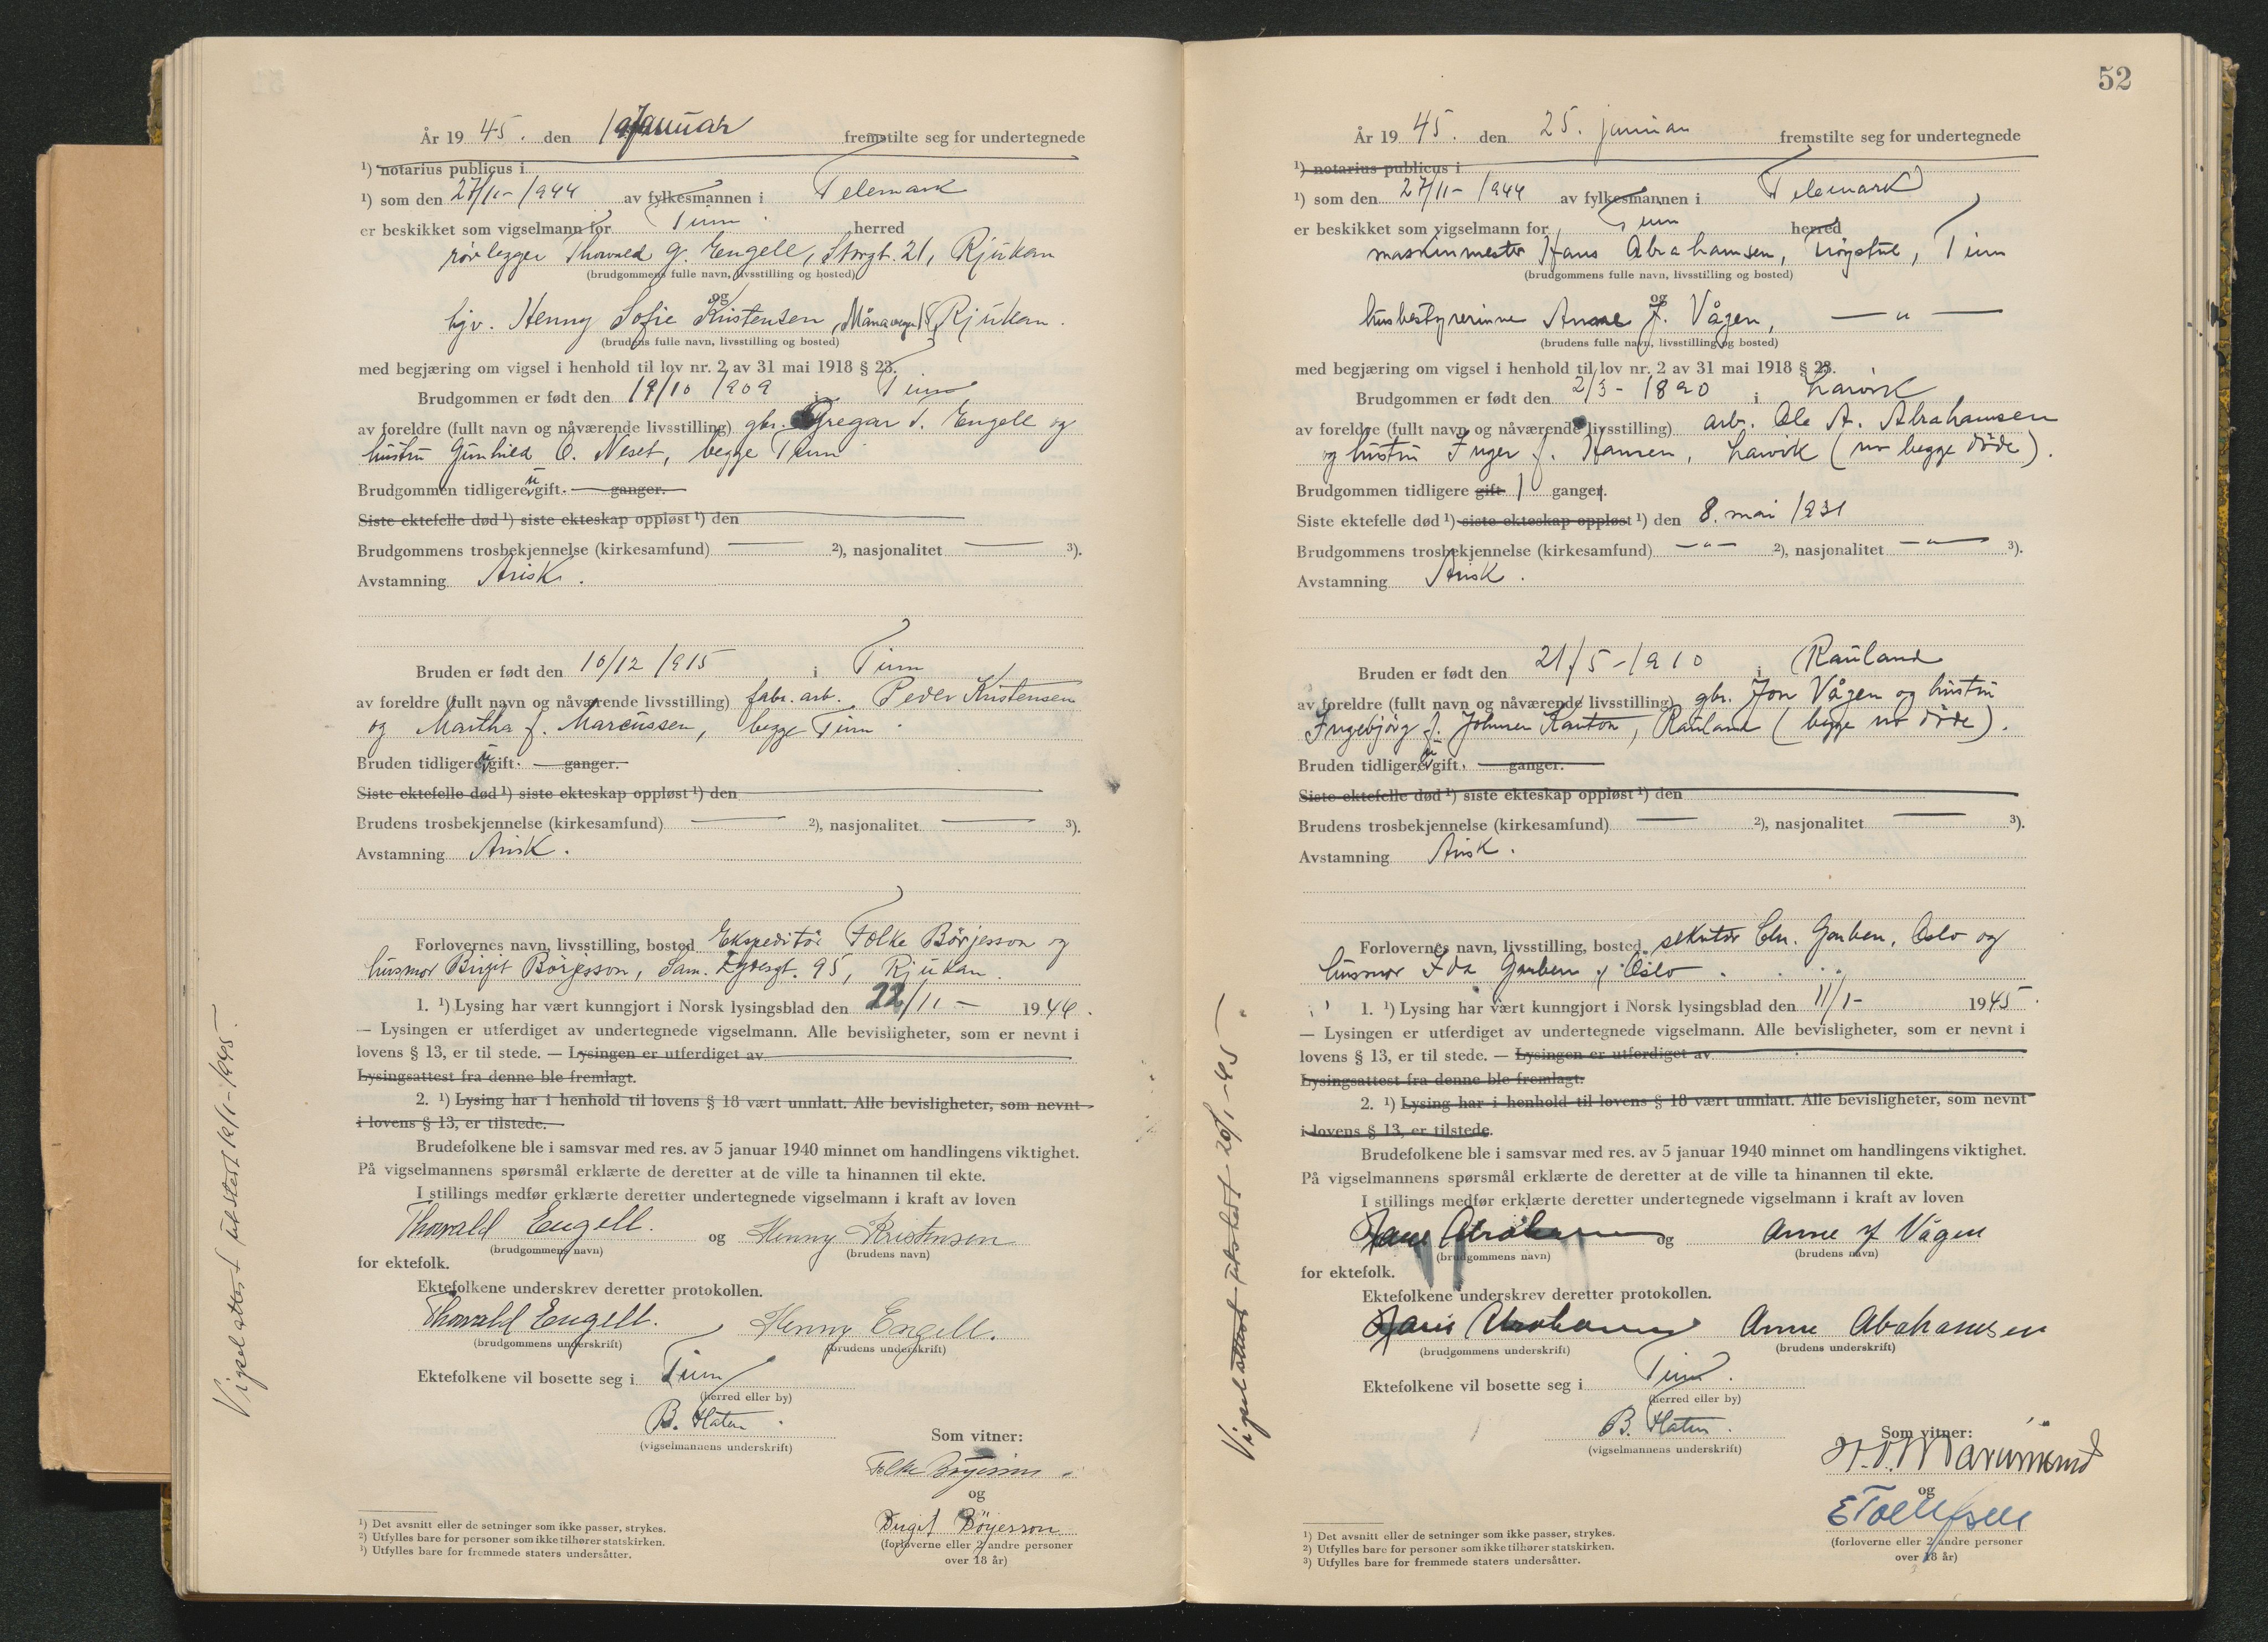 År 19 45. den 1 Januar fremstilte seg for undertegnede
¹) notarius publicus i
¹) som den 27/11- 1944 av fylkesmannen i Telemark
er beskikket som vigselmann for Tinn herred
rørlegger Thorvald G. Engell, Storgt. 21, Rjukan
(brudgommens fulle navn, livsstilling og bosted)
og
hjv. Henny Sofie Kristensen, Rjukan.
(brudens fulle navn, livsstilling og bosted)
med begjæring om vigsel i henhold til lov nr. 2 av 31 mai 1918 § 23.
Brudgommen er født den 19/10 1909 i Tinn
av foreldre (fullt navn og nåværende livsstilling) gbr. Gregar S. Engell og
hustru Gunhild O. Neset, begge Tinn
Brudgommen tidligere ugift. ganger.
Siste ektefelle død ¹) siste ekteskap oppløst ¹) den
Brudgommens trosbekjennelse (kirkesamfund) — ²), nasjonalitet — ³).
Avstamning Arisk.
Bruden er født den 10/12 1915 i Tinn
av foreldre (fullt navn og nåværende livsstilling) fabr. arb. Peder Kristensen
og Martha f. Marcussen, begge Tinn.
Bruden tidligere ugift. ganger.
Siste ektefelle død ¹) siste ekteskap oppløst ¹) den
Brudens trosbekjennelse (kirkesamfund) — ²), nasjonalitet — ³).
Avstamning Arisk.
Forlovernes navn, livsstilling, bosted Ekspeditør Folke Börjesson og
husmor Birgit Börjesson, Sam. Eydesgt. 95, Rjukan.
1. ¹) Lysing har vært kunngjort i Norsk lysingsblad den 22/11 - 1944.
— Lysingen er utferdiget av undertegnede vigselmann. Alle bevisligheter, som er nevnt i
lovens § 13, er til stede. — Lysingen er utferdiget av
Lysingsattest fra denne ble fremlagt.
2. ¹) Lysing har i henhold til lovens § 18 vært unnlatt. Alle bevisligheter, som nevnt
i lovens § 13, er tilstede.
Brudefolkene ble i samsvar med res. av 5 januar 1940 minnet om handlingens viktighet.
På vigselmannens spørsmål erklærte de deretter at de ville ta hinannen til ekte.
I stillings medfør erklærte deretter undertegnede vigselmann i kraft av loven
Thorvald Engell. og Henny Kristensen
(brudgommens navn) (brudens navn)
for ektefolk.
Ektefolkene underskrev deretter protokollen.
Thorvald Engell. Henny Engell.
(brudgommens underskrift) (brudens underskrift)
Ektefolkene vil bosette seg i Tinn
(herred eller by)
B. Haten.
(vigselmannens underskrift)
Som vitner:
Folke Börjesson
og
Birgit Börjesson
(forloverne eller 2 andre personer
over 18 år)
¹) Det avsnitt eller de setninger som ikke passer, strykes.
²) Utfylles bare for personer som ikke tilhører statskirken.
³) Utfylles bare for fremmede staters undersåtter.
Vigselattest utstedt 12/1-1945.
52
År 19 45. den 25. januar fremstilte seg for undertegnede
¹) notarius publicus i
¹) som den 27/11- 1944 av fylkesmannen i Telemark
er beskikket som vigselmann for Tinn herred
maskinmester Hans Abrahamsen, Frøystul, Tinn
(brudgommens fulle navn, livsstilling og bosted)
og
husbestyrerinne Anne J. Vågen, — " —
(brudens fulle navn, livsstilling og bosted)
med begjæring om vigsel i henhold til lov nr. 2 av 31 mai 1918 § 23.
Brudgommen er født den 2/3- 1890 i Larvik
av foreldre (fullt navn og nåværende livsstilling) arb. Ole A. Abrahamsen
og hustru Inger f. Hansen, Larvik (nu begge døde).
Brudgommen tidligere gift 1 ganger.
Siste ektefelle død ¹) siste ekteskap oppløst ¹) den 8. mai 1931
Brudgommens trosbekjennelse (kirkesamfund) — " — ²), nasjonalitet — " — ³).
Avstamning Arisk.
Bruden er født den 21/5 - 1910 i Rauland
av foreldre (fullt navn og nåværende livsstilling) gbr. Jon Vågen og hustru
Ingebjørg f. Johnsen Kanton, Rauland (begge nu døde).
Bruden tidligere ugift. ganger.
Siste ektefelle død ¹) siste ekteskap oppløst ¹) den
Brudens trosbekjennelse (kirkesamfund) — ²), nasjonalitet — ³).
Avstamning Arisk.
Forlovernes navn, livsstilling, bosted sekretær Chr. Garben, Oslo og
husmor Ida Garben, Oslo.
1. ¹) Lysing har vært kunngjort i Norsk lysingsblad den 11/1- 1945.
— Lysingen er utferdiget av undertegnede vigselmann. Alle bevisligheter, som er nevnt i
lovens § 13, er til stede. — Lysingen er utferdiget av
Lysingsattest fra denne ble fremlagt.
2. ¹) Lysing har i henhold til lovens § 18 vært unnlatt. Alle bevisligheter, som nevnt
i lovens § 13, er tilstede.
Brudefolkene ble i samsvar med res. av 5 januar 1940 minnet om handlingens viktighet.
På vigselmannens spørsmål erklærte de deretter at de ville ta hinannen til ekte.
I stillings medfør erklærte deretter undertegnede vigselmann i kraft av loven
Hans Abrahamsen og Anne J Vågen
(brudgommens navn) (brudens navn)
for ektefolk.
Ektefolkene underskrev deretter protokollen.
Hans Abrahamsen Anne Abrahamsen
(brudgommens underskrift) (brudens underskrift)
Ektefolkene vil bosette seg i Tinn.
(herred eller by)
B. Haten.
(vigselmannens underskrift)
Som vitner:
og
E Tollefsen
(forloverne eller 2 andre personer
over 18 år)
¹) Det avsnitt eller de setninger som ikke passer, strykes.
²) Utfylles bare for personer som ikke tilhører statskirken.
³) Utfylles bare for fremmede staters undersåtter.
Vigselattest utstedt 26/1-45